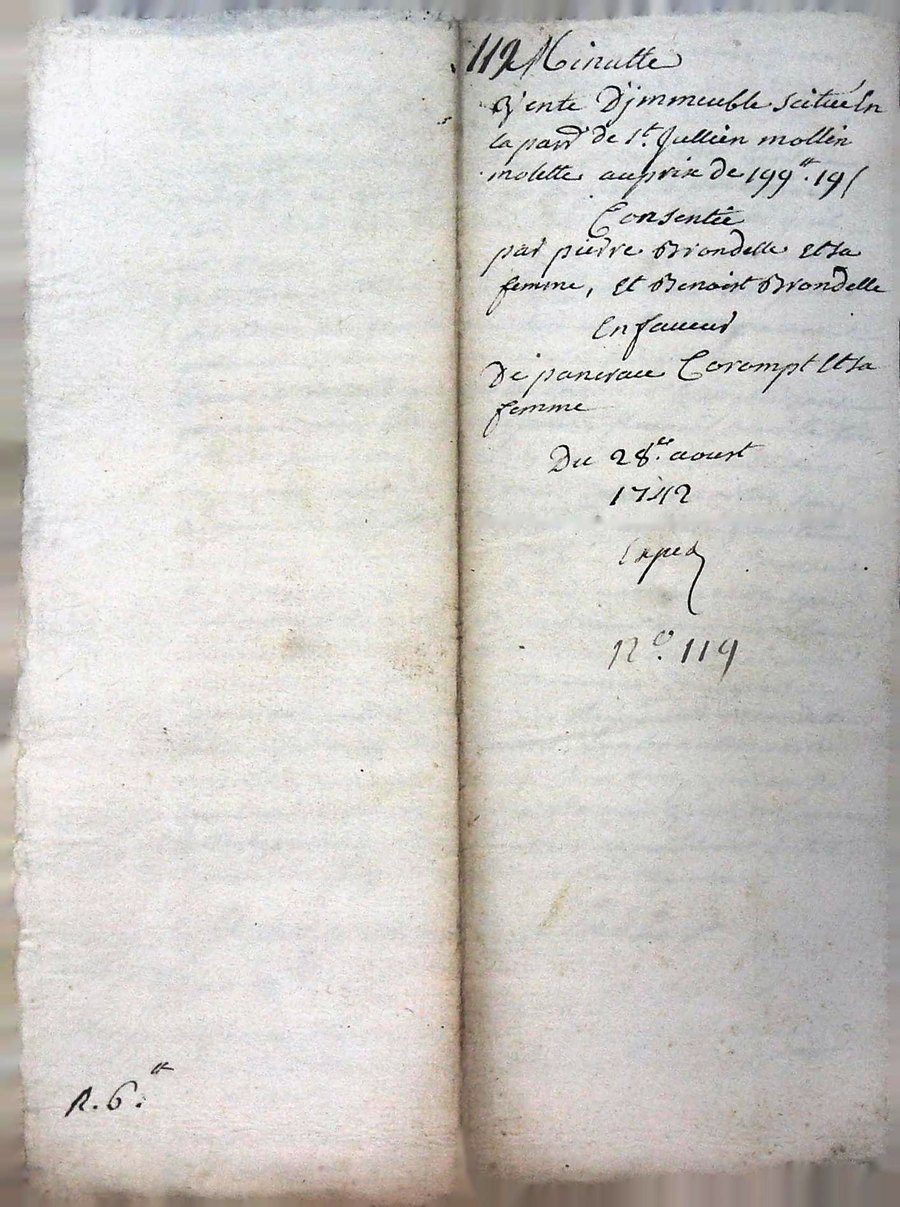 119 Minutte
Vente D'jmmeuble scitué En
la parr de St. Jullien mollin
molette au prix de 199tt. 19s
Consentie
par pierre Brondelle Et sa
femme, Et Benoist Brondelle
En faueur
De pancrace Corompt Et sa
femme
Du 28e. aoust
1742
Exped
No. 119
R. 6.tt